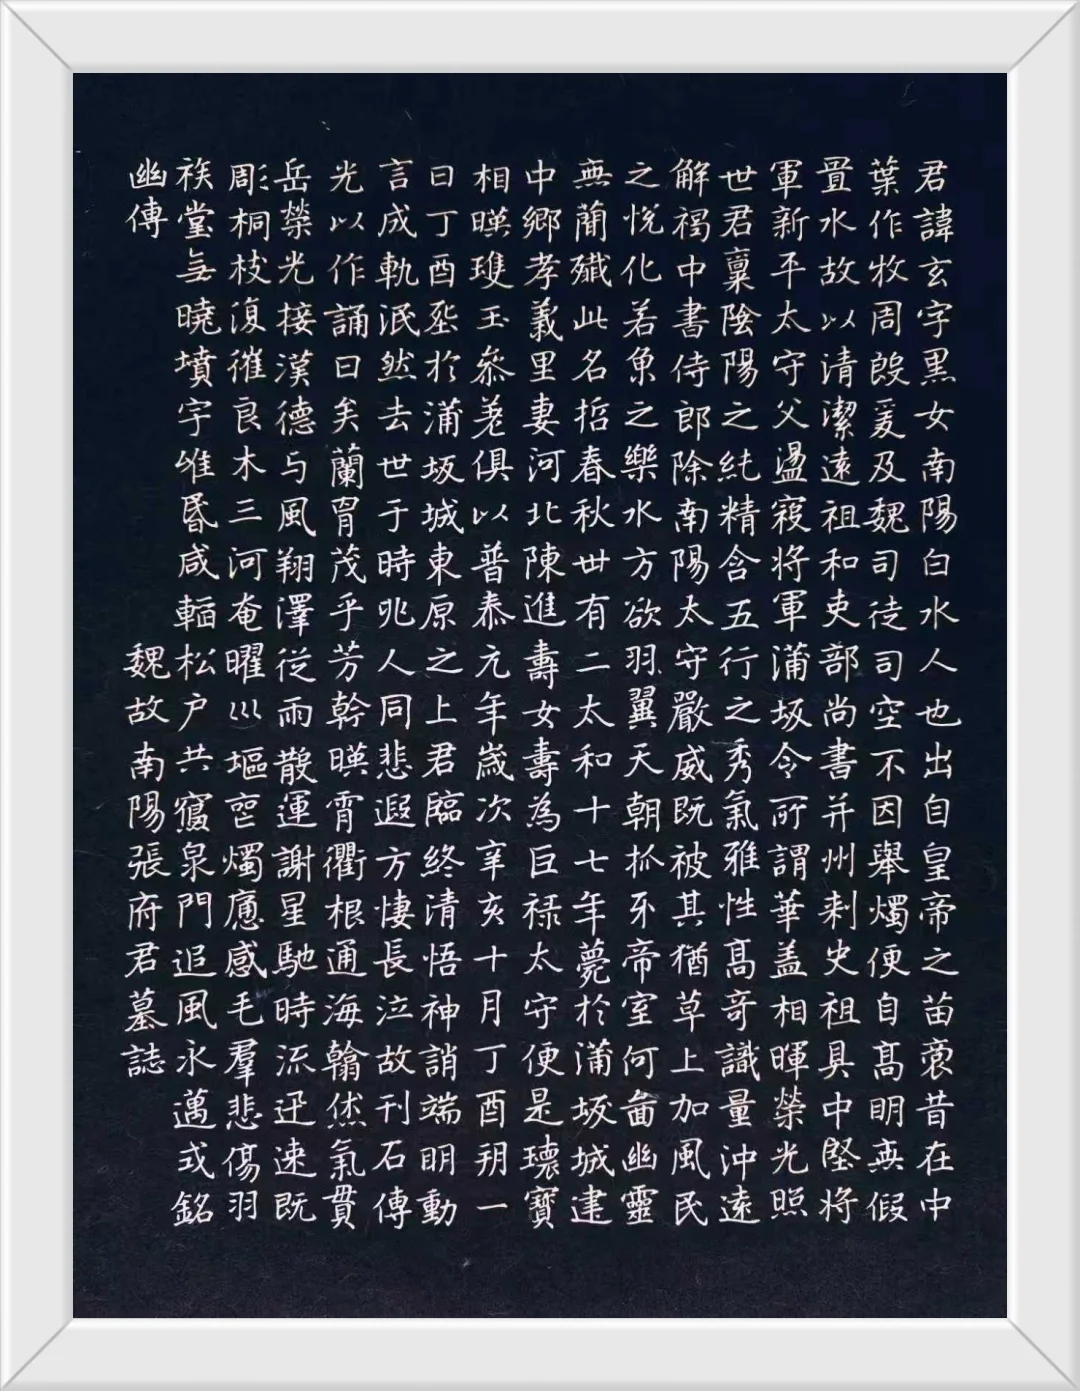 君諱玄字黑女南陽白水人也出自皇帝之苗裔昔在中
葉作牧周殷爰及魏司徒司空不因舉燭便自高明無假
置水故以清潔遠祖和吏部尚書并州刾史祖具中堅將
軍新平太守父盪寇將軍蒲坂令所謂華盖相暉榮光照
世君稟陰陽之純精含五行之秀氣雅性高奇識量沖遠
解褐中書侍郎除南陽太守嚴威既被其猶草上加風民
之悅化若魚之樂水方欲羽翼天朝抓牙帝室何啚幽靈
無蕳殲此名哲春秋卅有二太和十七年薨於蒲坂城建
中鄉孝義里妻河北陳進壽女壽為巨祿太守便是瓌寶
相暎璉玉叅差俱以普泰元年歲次辛亥十月丁酉朔一
日丁酉塟於蒲坂城東原之上君臨終清悟神誚端明動
言成軌泯然去世于時兆人同悲遐方悽長泣故刊石傳
光以作誦曰矣蘭胃茂乎芳幹暎霄衢根通海翰恷氣貫
岳榮光接漢德与風翔澤從雨散運謝星馳時流迅速既
彫桐枝復摧良木三河奄曜巛堀㐫燭應感毛羣悲傷羽
族堂无曉墳宇唯昏咸輼松户共寢泉門追風永邁式銘
幽傳
魏故南陽張府君墓誌